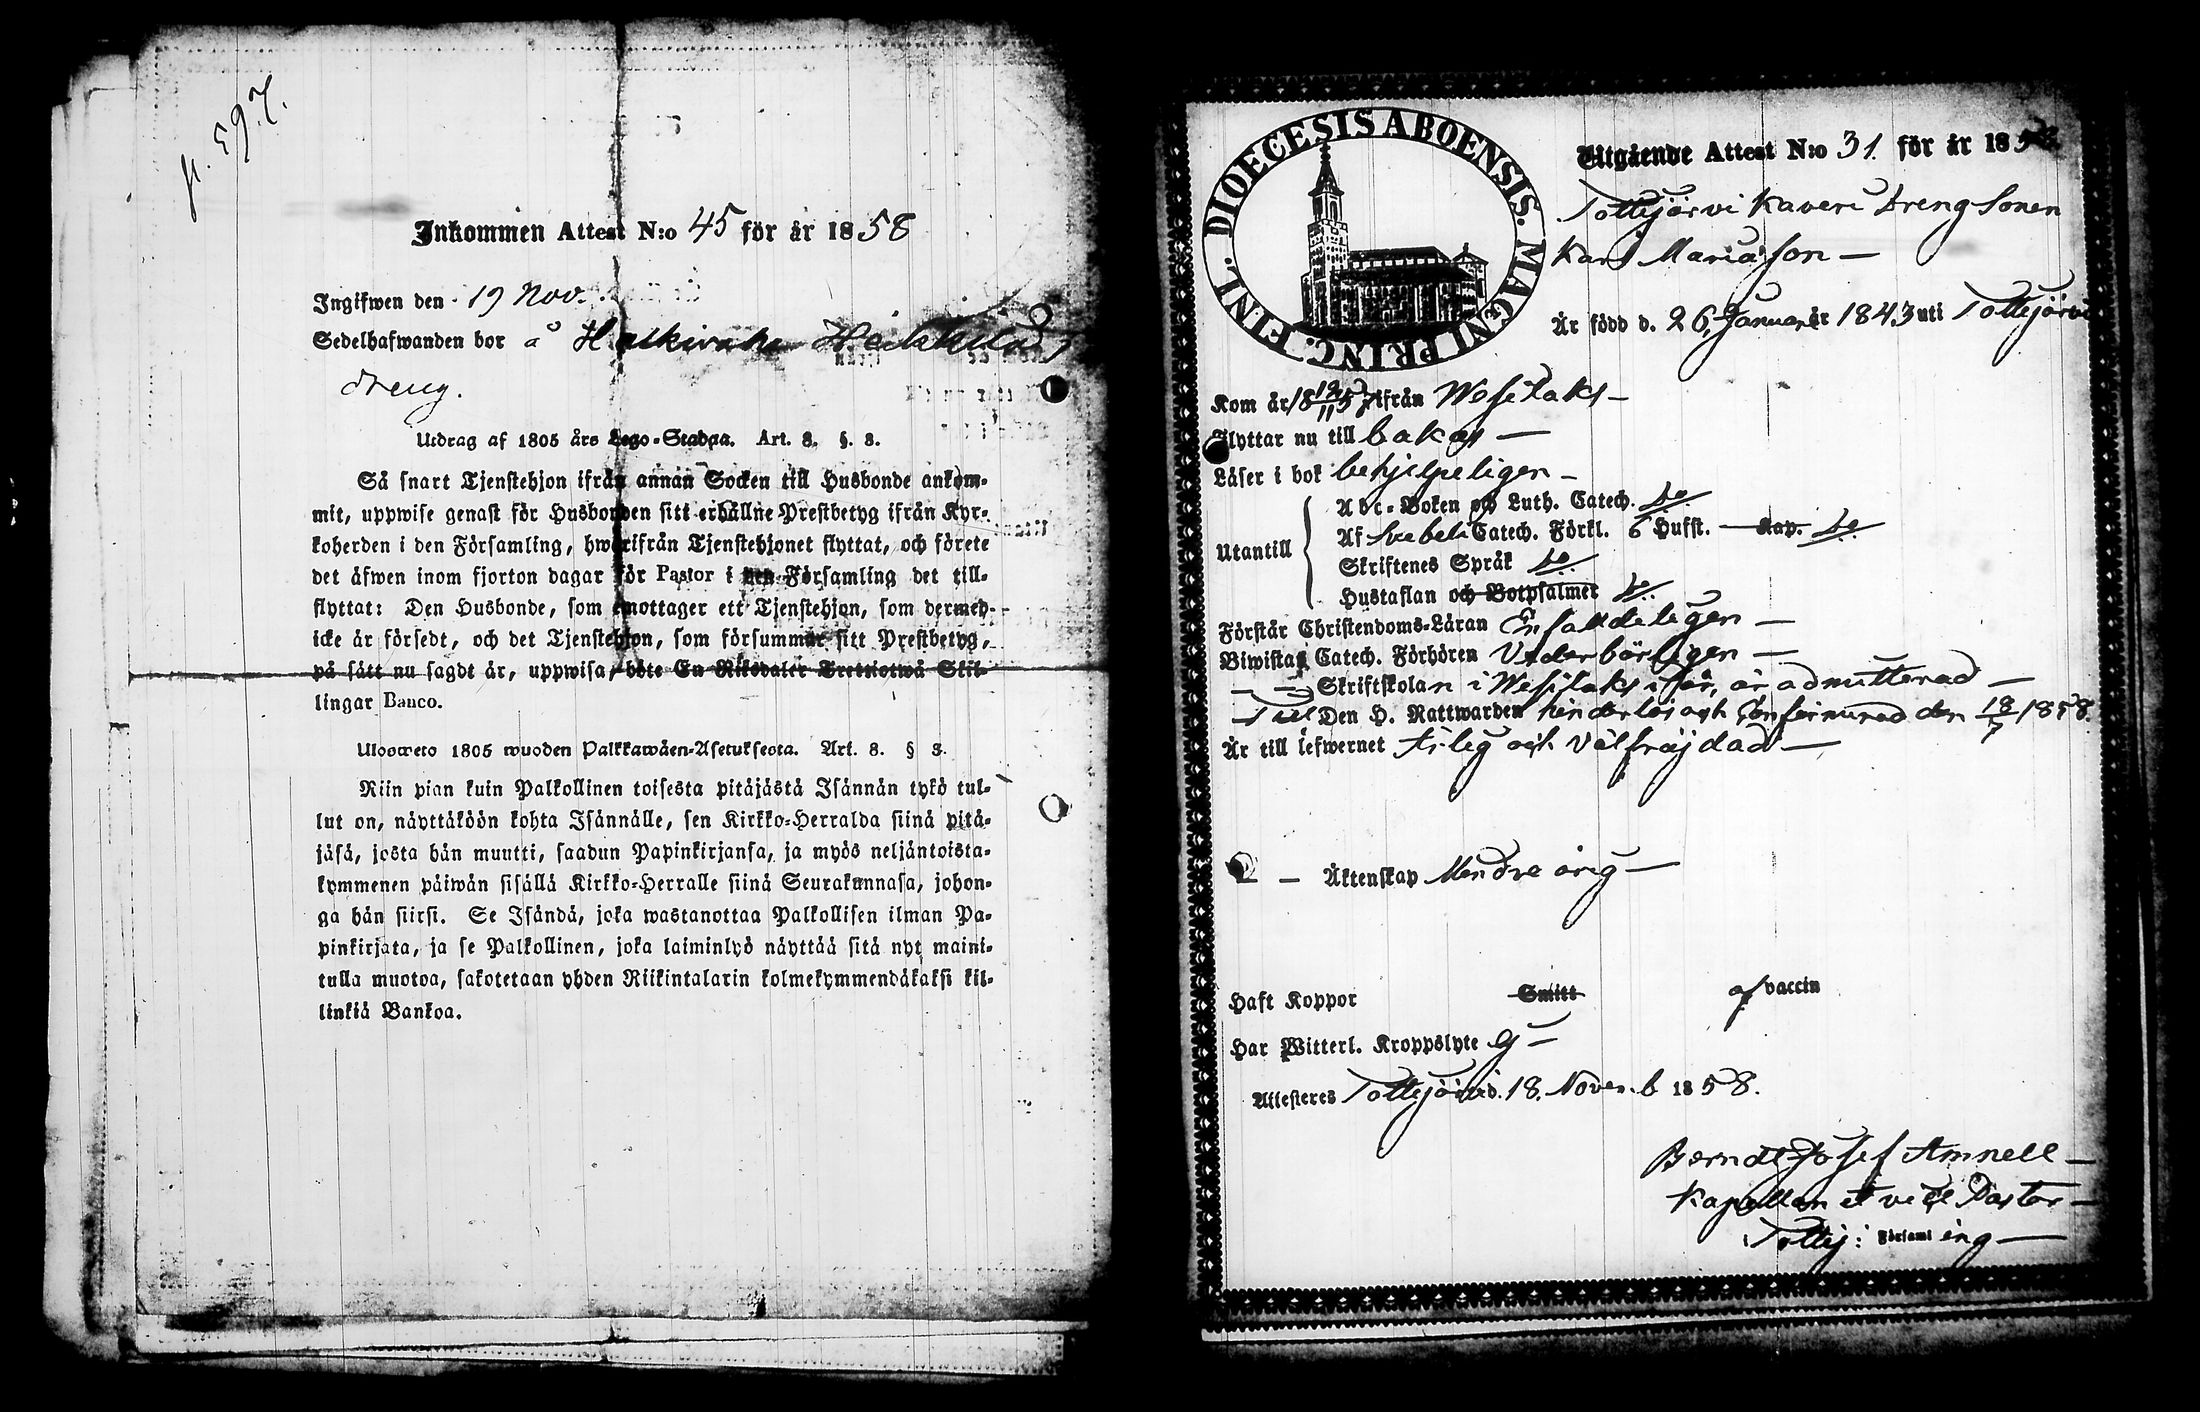 p. 597.
Inkommen Attest N:o 45 för år 1858
Ingifwen den 19 Nov.
Sedelhafwanden bor å
dreng.
Utdrag af 1805 års Lego-Stadga. Art. 8. §. 3.
Så snart Tjenstehjon ifrån annan Socken till Husbonde ankom-
mit, uppwise genast för Husbonden sitt erhållne Prestbetyg ifrån Kyr-
koherden i den Församling, hwarifrån Tjenstehjonet flyttat, och förete
det äfwen inom fjorton dagar för Pastor i den Församling det till-
flyttat: Den Husbonde, som emottager ett Tjenstehjon, som dermed
icke är försedt, och det Tjenstehjon, som försummar sitt Prestbetyg,
på sätt nu sagdt är, uppwisa, böte En Riksdaler Trettiotwå Skil-
lingar Banco.
Ulosweto 1805 wuoden Palkkawäen-Asetuksesta. Art. 8. § 3.
Niin pian kuin Palkollinen toisesta pitäjästä Isännän tykö tul-
lut on, näyttäköön kohta Isännälle, sen Kirkko-Herralda siinä pitä-
jäsä, josta hän muutti, saadun Papinkirjansa, ja myös neljäntoista-
kymmenen päiwän sisällä Kirkko-Herralle siinä Seurakunnasa, johon-
ga hän siirsi. Se Isändä, joka wastanottaa Palkollisen ilman Pa-
pinkirjata, ja se Palkollinen, joka laiminlyö näyttää sitä nyt maini-
tulla muotoa, sakotetaan yhden Riikintalarin kolmekymmendäkaksi kil-
linkiä Bankoa.
DIOECESIS ABOENSIS. MAGNI PRINC. FINL.
Utgående Attest N:o 31. för år 1858.
Tottijärvi Kaveri Dreng Sonen
Karl Mariasson —
Är född d. 26 Januari år 1843 uti Tottijärvi
Kom år 18 12/11 57 ifrån Wesilaks —
Flyttar nu till bakas —
Läser i bok behjelpeligen —
Utantill
Abc-Boken och Luth. Catech. do
Af Svebeli Catech. Förkl. 6 Hufst. — Kap. do
Skriftenes Språk do
Hustaflan och Botpsalmer do
Förstår Christendoms-Läran Enfaldeligen —
Biwistat Catech. Förhören Vederbörligen —
Skriftskolan i Wesilaks i får, är admitterad —
Till Den H. Nattwarden hinderlös och Confirmerad den 18/7 1858.
Är till lefwernet ärlig och Välfräjdad —
— Äktenskap Mindre årig —
Haft Koppor Smitt af vaccin
Har Witterl. Kroppslyte ej —
Attesteres Tottijärvi d. 18. Novemb 1858.
Berndt Josef Amnell —
Kapellan et vice Pastor —
i Tottij: Församling —